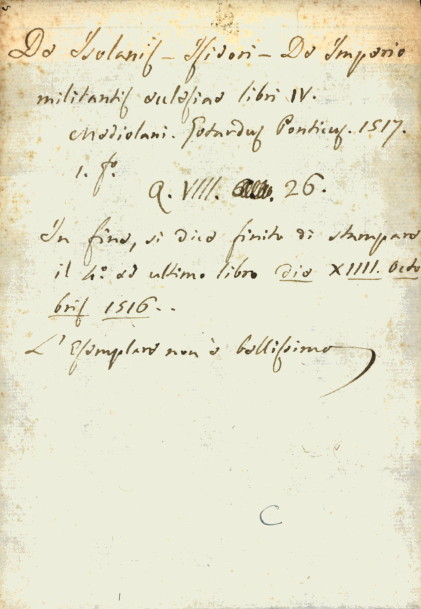 De Isolanis - Isidori - De Imperio
militantis eclesiae libri IV.
Mediolani. Gotardus Ponticus. 1517.
1. fo.
Q. VIII. 26.
In fine, si dice finito di stampare
il 4º ed ultimo libro die XIIII. Octo
bris 1516..
L'Esemplare non è bellissimo
C